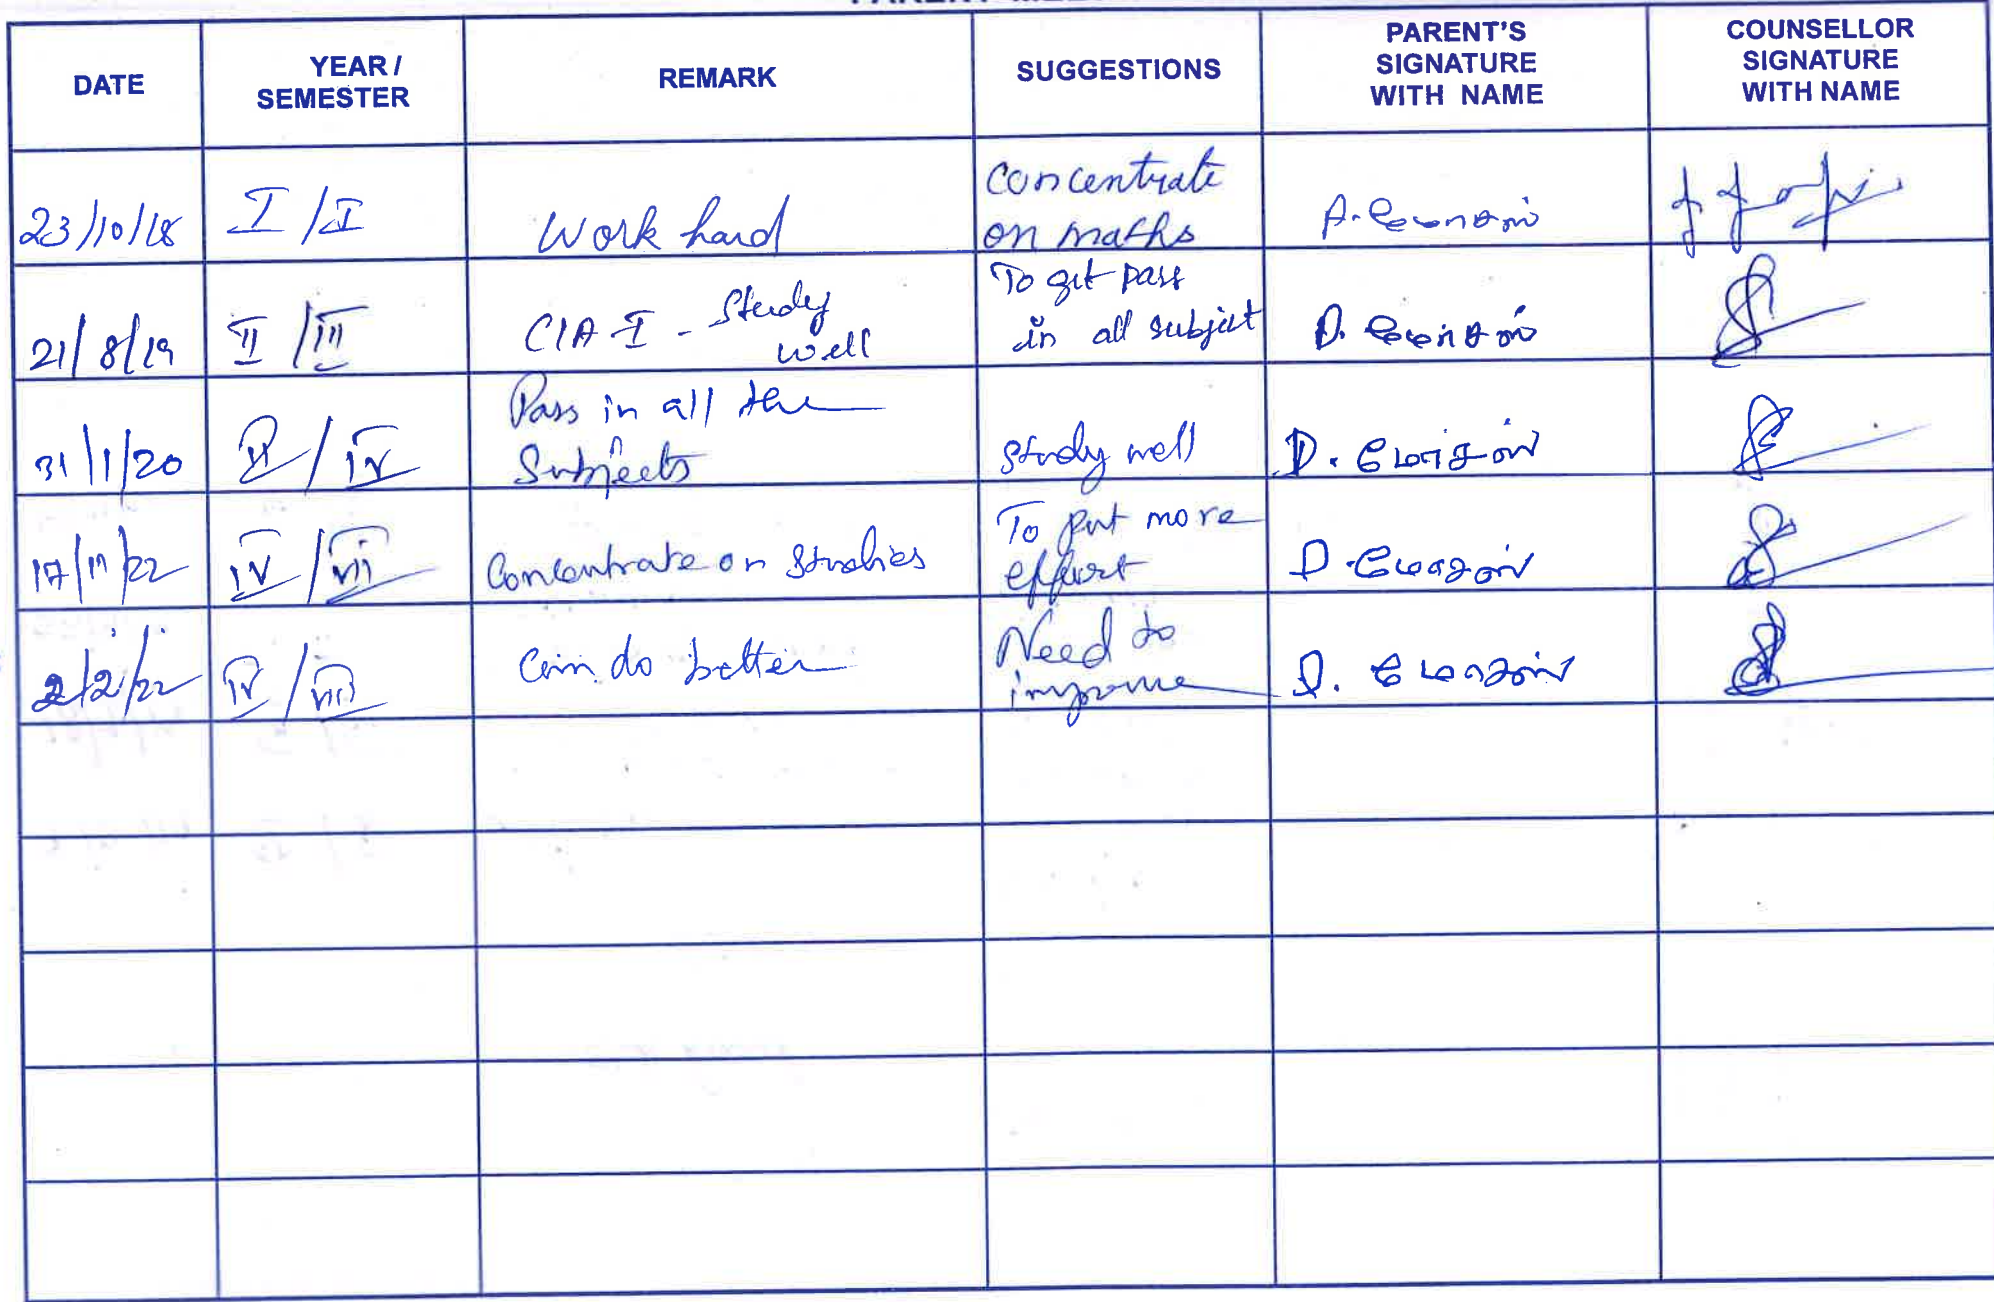 DATE YEAR / SEMESTER REMARK SUGGESTIONS PARENT'S SIGNATURE WITH NAME COUNSELLOR SIGNATURE WITH NAME
23/10/18 I / I Work hard Concentrate on maths
21/8/19 II / III CIA-I - Study well To get pass in all subject
31/1/20 II / IV Pass in all the Subjects Study well D. மோகன்
17/11/22 IV / VII Concentrate on Studies To put more effort D. மோகன்
2/2/22 IV / VIII Can do better Need to improve D. மோகன்